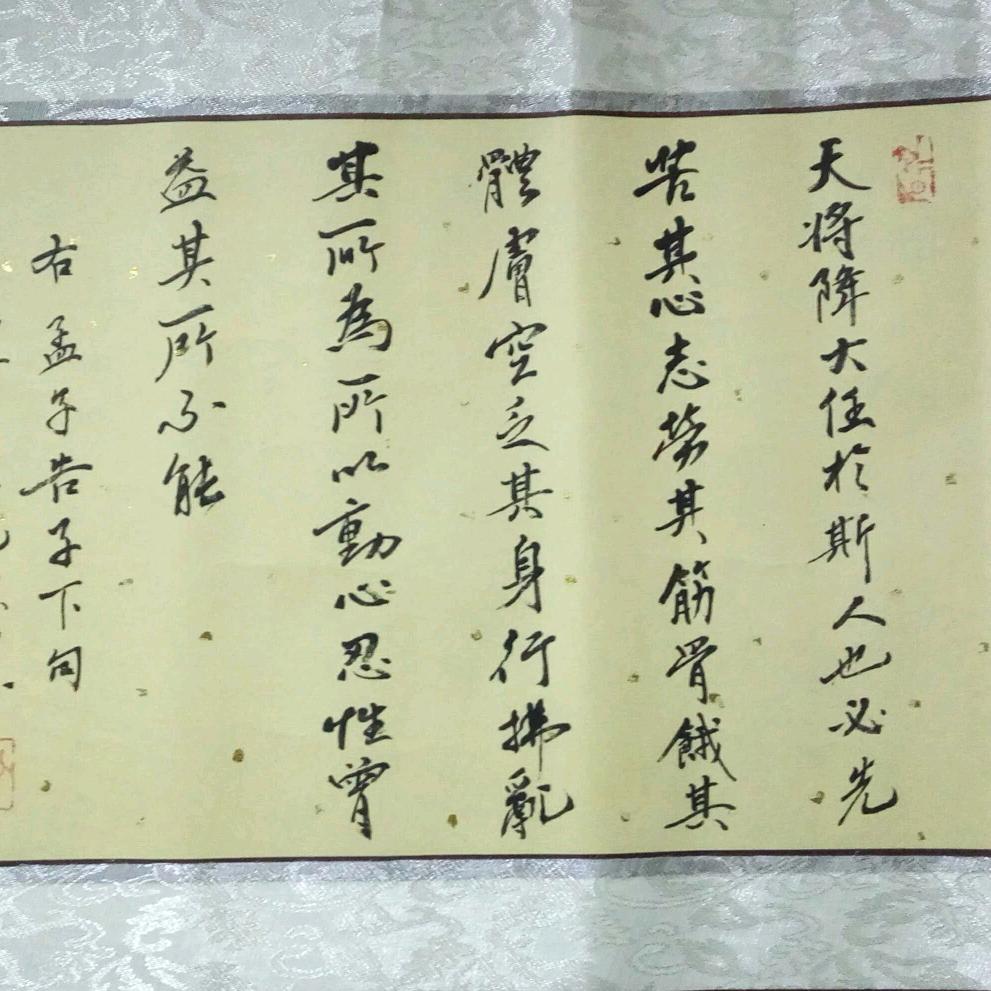 天將降大任於斯人也必先
苦其心志勞其筋骨餓其
體膚空乏其身行拂亂
其所為所以動心忍性曾
益其所不能
右孟子告子下句